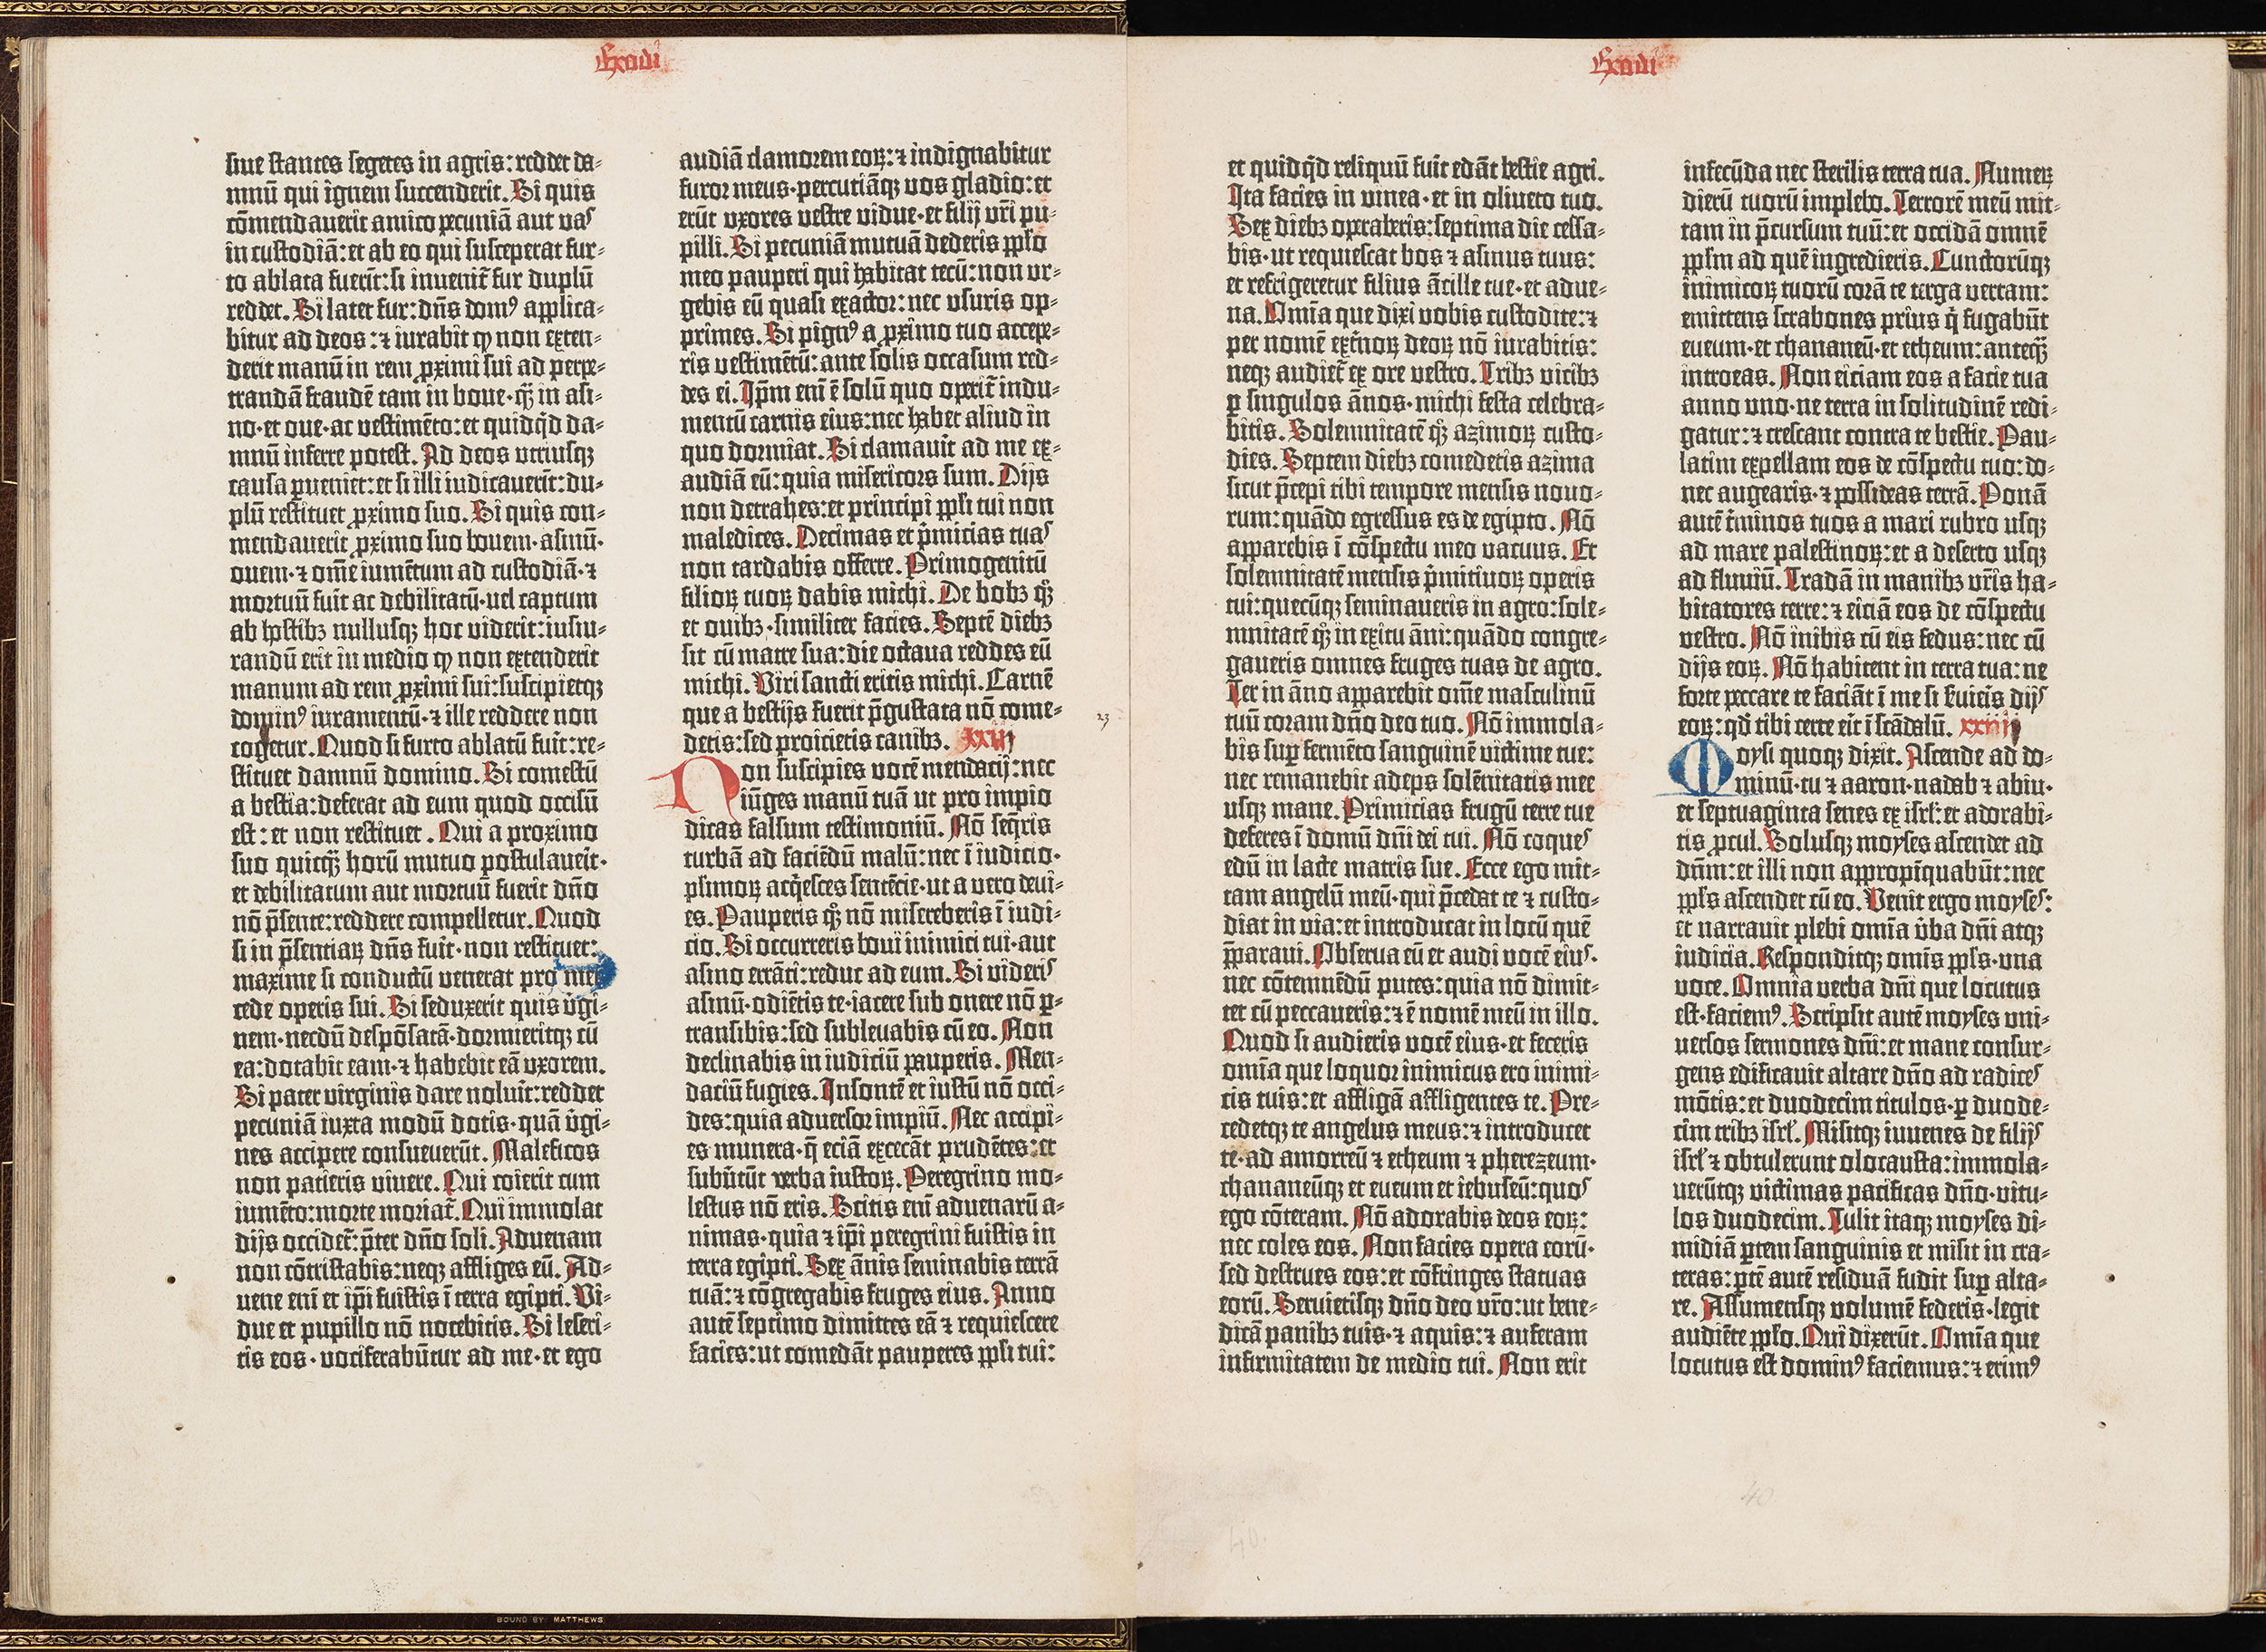 Exodi
siue stantes segetes in agris: reddet da-
mnū qui ignem succenderit. Si quis
cōmendauerit amico pecuniā aut vas
in custodiā: et ab eo qui susceperat fur-
to ablata fuerīt: si inuenit̄ fur duplū
reddet. Si latet fur: dn̄s domꝰ applica-
bitur ad deos: ⁊ iurabit ꝙ non exten-
derit manū in rem ꝓximi sui ad perpe-
trandā fraudē tam in boue · qꝫ̄ in asi-
no · et oue · ac vestimēto: et quidq̇d da-
mnū inferre potest. Ad deos utriusqꝫ
causa ꝑueniet: et si illi iudicauerīt: du-
plū restituet ꝓximo suo. Si quis com-
mendauerit ꝓximo suo bouem · asinū ·
ouem · ⁊ om̄e iumētum ad custodiā · ⁊
mortuū fuīt ac debilitatū · uel captum
ab hostibꝫ nullusqꝫ hoc viderit: iusiu-
randū erit in medio ꝙ non extenderit
manum ad rem ꝓximi sui: suscipietqꝫ
dominꝰ iuramentū · ⁊ ille reddere non
cogetur. Quod si furto ablatū fuīt: re-
stituet damnū domino. Si comestū
a bestia: deferat ad eum quod occisū
est: et non restituet. Qui a proximo
suo quicqꝫ̄ horū mutuo postulaueīt ·
et debilitatum aut mortuū fuerit dn̄o
nō p̄sente: reddere compelletur. Quod
si in p̄sentiaꝝ dn̄s fuīt · non restituet:
maxime si conductū venerat pro mer
cede operis sui. Si seduxerit quis v̇gi-
nem · necdū despōsatā · dormieritqꝫ cū
ea: dotabit eam · ⁊ habebit eā vxorem.
Si pater virginis dare noluīt: reddet
pecuniā iuxta modū dotis · quā v̇gi-
nes accipere consueuerūt. Maleficos
non patieris viuere. Qui coierit cum
iumēto: morte moriat̄. Qui immolat
dijs occidet̄: p̄ter dn̄o soli. Aduenam
non cōtristabis: neqꝫ affliges eū. Ad-
uene eni et ip̄i fuistis ī terra egipti. Vi-
due et pupillo nō nocebitis. Si leseri-
tis eos · vociferabūtur ad me · et ego
audiā clamorem eoꝝ: ⁊ indignabitur
furor meus · percutiāqꝫ vos gladio: et
erūt vxores vestre vidue · et filij vr̄i pu-
pilli. Si pecuniā mutuā dederis pp̄lo
meo pauperi qui habitat tecū: non vr-
gebis eū quasi exactor: nec vsuris op-
primes. Si pignꝰ a ꝓximo tuo accepe-
ris vestimētū: ante solis occasum red-
des ei. Ip̄m eni ē solū quo operit̄ indu-
mentū carnis eius: nec habet aliud in
quo dormiat. Si clamauīt ad me ex-
audiā eū: quia misericors sum. Dijs
non detrahes: et principi pp̄li tui non
maledices. Decimas et ṗmicias tuas
non tardabis offerre. Primogenitū
filioꝝ tuoꝝ dabis michi. De bobꝫ qꝫ̊
et ouibꝫ · similiter facies. Septē diebꝫ
sit cū matre sua: die octaua reddes eū
michi. Viri sancti eritis michi. Carnē
que a bestijs fuerit p̄gustata nō come-
detis: sed proicietis canibꝫ. xxiij
Non suscipies vocē mendacij: nec
iūges manū tuā ut pro impio
dicas falsum testimoniū. Nō seq̄ris
turbā ad faciēdū malū: nec ī iudicio ·
plīmoꝝ acq̇esces sentētie · ut a vero deui-
es. Pauperis qꝫ̊ nō misereberis ī iudi-
cio. Si occurreris boui inimici tui · aut
asino errāti: reduc ad eum. Si videris
asinū · odiētis te · iacere sub onere nō ꝑ-
transibis: sed subleuabis cū eo. Non
declinabis in iudiciū pauperis. Men-
daciū fugies. Insontē et iustū nō occi-
des: quia aduersor impiū. Nec accipi-
es munera · q̄ eciā excecāt prudētes: et
subūtūt verba iustoꝝ. Peregrino mo-
lestus nō eris. Scitis eni aduenarū a-
nimas · quia ⁊ ip̄i peregrini fuistis in
terra egipti. Sex ānis seminabis terrā
tuā: ⁊ cōgregabis fruges eius. Anno
autē septimo dimittes eā ⁊ requiescere
facies: ut comedāt pauperes pp̄li tui:
23
Exodi
et quidq̇d reliquū fuīt edāt bestie agri.
Ita facies in vinea · et in oliueto tuo.
Sex diebꝫ operaberis: septima die cessa-
bis · ut requiescat bos ⁊ asinus tuus:
et refrigeretur filius ācille tue · et adue-
na. Omīa que dixi vobis custodite: ⁊
per nomē ext̄noꝝ deoꝝ nō iurabitis:
neqꝫ audiet̄ ex ore vestro. Tribꝫ vicibꝫ
ꝑ singulos ānos · michi festa celebra-
bitis. Solemnitatē qꝫ̊ azimoꝝ custo-
dies. Septem diebꝫ comedetis azima
sicut p̄cepi tibi tempore mensis nouo-
rum: quādo egressus es de egipto. Nō
apparebis ī cōspectu meo vacuus. Et
solemnitatē mensis ṗmitiuoꝝ operis
tui: quecūqꝫ seminaueris in agro: sole-
mnitatē qꝫ̊ in exitu āni: quādo congre-
gaueris omnes fruges tuas de agro.
Ter in āno apparebit om̄e masculinū
tuū coram dn̄o deo tuo. Nō immola-
bis suꝑ fermēto sanguinē victime tue:
nec remanebit adeps solēnitatis mee
usqꝫ mane. Primicias frugū terre tue
deferes ī domū dn̄i dei tui. Nō coques
edū in lacte matris sue. Ecce ego mit-
tam angelū meū · qui p̄cedat te ⁊ custo-
diat in via: et introducat in locū quē
p̄paraui. Obserua eū et audi vocē eius ·
nec cōtemnēdū putes: quia nō dimit-
tet cū peccaueris: ⁊ ē nomē meū in illo.
Quod si audieris vocē eius · et feceris
omīa que loquor inimicus ero inimi-
cis tuis: et affligā affligentes te. Pre-
cedetqꝫ te angelus meus: ⁊ introducet
te · ad amorreū ⁊ etheum ⁊ pherezeum ·
chananeūqꝫ et eueum et iebuseū: quos
ego cōteram. Nō adorabis deos eoꝝ:
nec coles eos. Non facies opera eorū ·
sed destrues eos: et cōfringes statuas
eorū. Seruietisqꝫ dn̄o deo vr̄o: ut bene-
dicā panibꝫ tuis · ⁊ aquis: ⁊ auferam
infirmitatem de medio tui. Non erit
infecūda nec sterilis terra tua. Numeꝝ
dierū tuorū implebo. Terrorē meū mit-
tam in p̄cursum tuū: et occidā omnē
pp̄lm ad quē ingredieris. Cunctorūqꝫ
inimicoꝝ tuorū corā te terga vertam:
emittens scrabones prius q̇ fugabūt
eueum · et chananeū · et etheum: anteqꝫ̄
introeas. Non eiciam eos a facie tua
anno uno · ne terra in solitudinē redi-
gatur: ⁊ crescant contra te bestie. Pau-
latim expellam eos de cōspectu tuo: do-
nec augearis · ⁊ possideas terrā. Ponā
autē t̄minos tuos a mari rubro usqꝫ
ad mare palestinoꝝ: et a deserto usqꝫ
ad fluuiū. Tradā in manibꝫ vr̄is ha-
bitatores terre: ⁊ eiciā eos de cōspectu
vestro. Nō inibis cū eis fedus: nec cū
dijs eoꝝ. Nō habitent in terra tua: ne
forte peccare te faciāt ī me si s̄uieris dijs
eoꝝ: qd̄ tibi certe eīt ī scādalū. xxiiij
Moysi quoqꝫ dixit. Ascende ad do-
minū · tu ⁊ aaron · nadab ⁊ abiu ·
et septuaginta senes ex isrl̄: et adorabi-
tis ꝓcul. Solusqꝫ moyses ascendet ad
dn̄m: et illi non appropīquabūt: nec
pp̄ls ascendet cū eo. Venit ergo moyses:
et narrauit plebi omīa v̇ba dn̄i atqꝫ
iudicia. Responditqꝫ omīs pp̄ls · una
voce. Omnia verba dn̄i que locutus
est · faciemꝰ. Scripsit autē moyses uni-
uersos sermones dn̄i: et mane consur-
gens edificauit altare dn̄o ad radices
mōtis: et duodecim titulos · ꝑ duode-
cim tribꝫ isrl̄. Misitqꝫ iuuenes de filijs
isrl̄ ⁊ obtulerunt olocausta: immola-
uerūtqꝫ victimas pacificas dn̄o · vitu-
los duodecim. Tulit itaqꝫ moyses di-
midiā ꝑtem sanguinis et misit in cra-
teras: ꝑtē autē residuā fudit suꝑ alta-
re. Assumensqꝫ volumē federis · legit
audiēte pp̄lo. Qui dixerūt. Omīa que
locutus est dominꝰ faciemus: ⁊ erimꝰ
40
40.
BOUND BY MATTHEWS